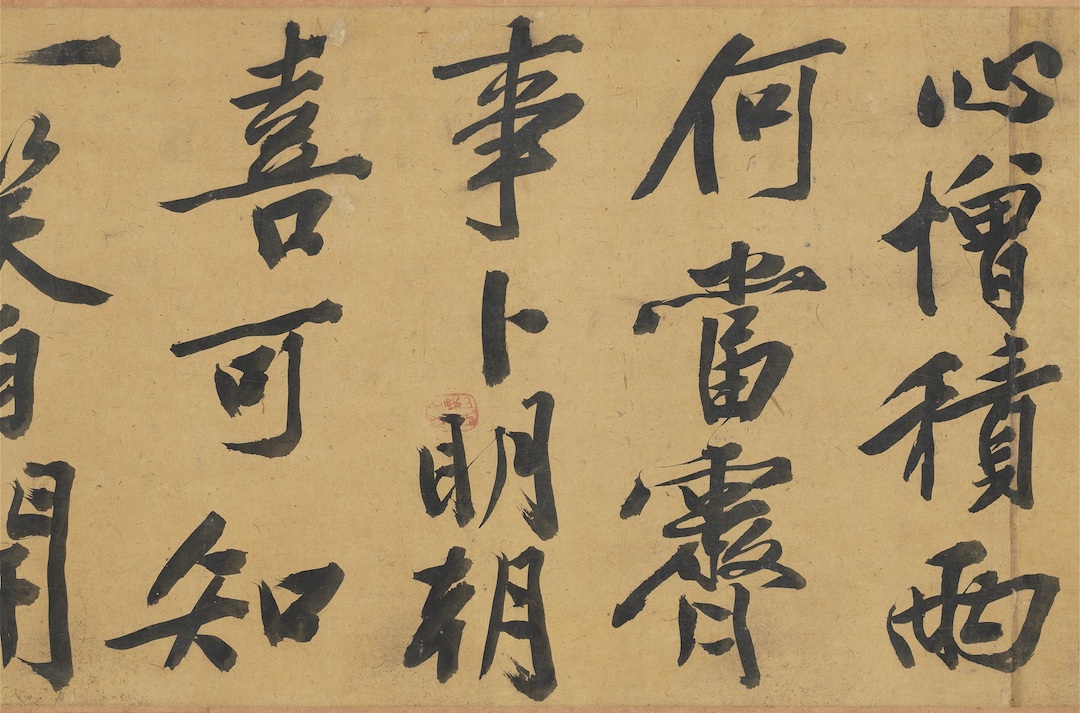 心憎積雨
何當霽
事卜明朝
喜可知
一笑自開